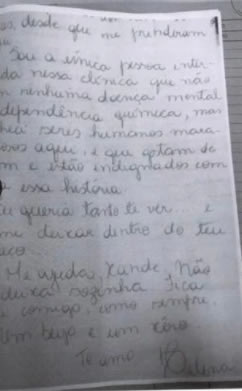 es, desde que me prenderam
Sou a única pessoa inter-
da nessa clínica que não
m nenhuma doença mental
dependência química, mas
seres humanos mara-
osos aqui, e que gostam de
m e estão indignados com
essa história.
eu queria tanto te ver... e
me deixar dentro do teu
aço.
Me ajuda, Xande, Não
deixa sozinha. Fica
comigo, como sempre.
Um beijo e um xêro.
Te amo